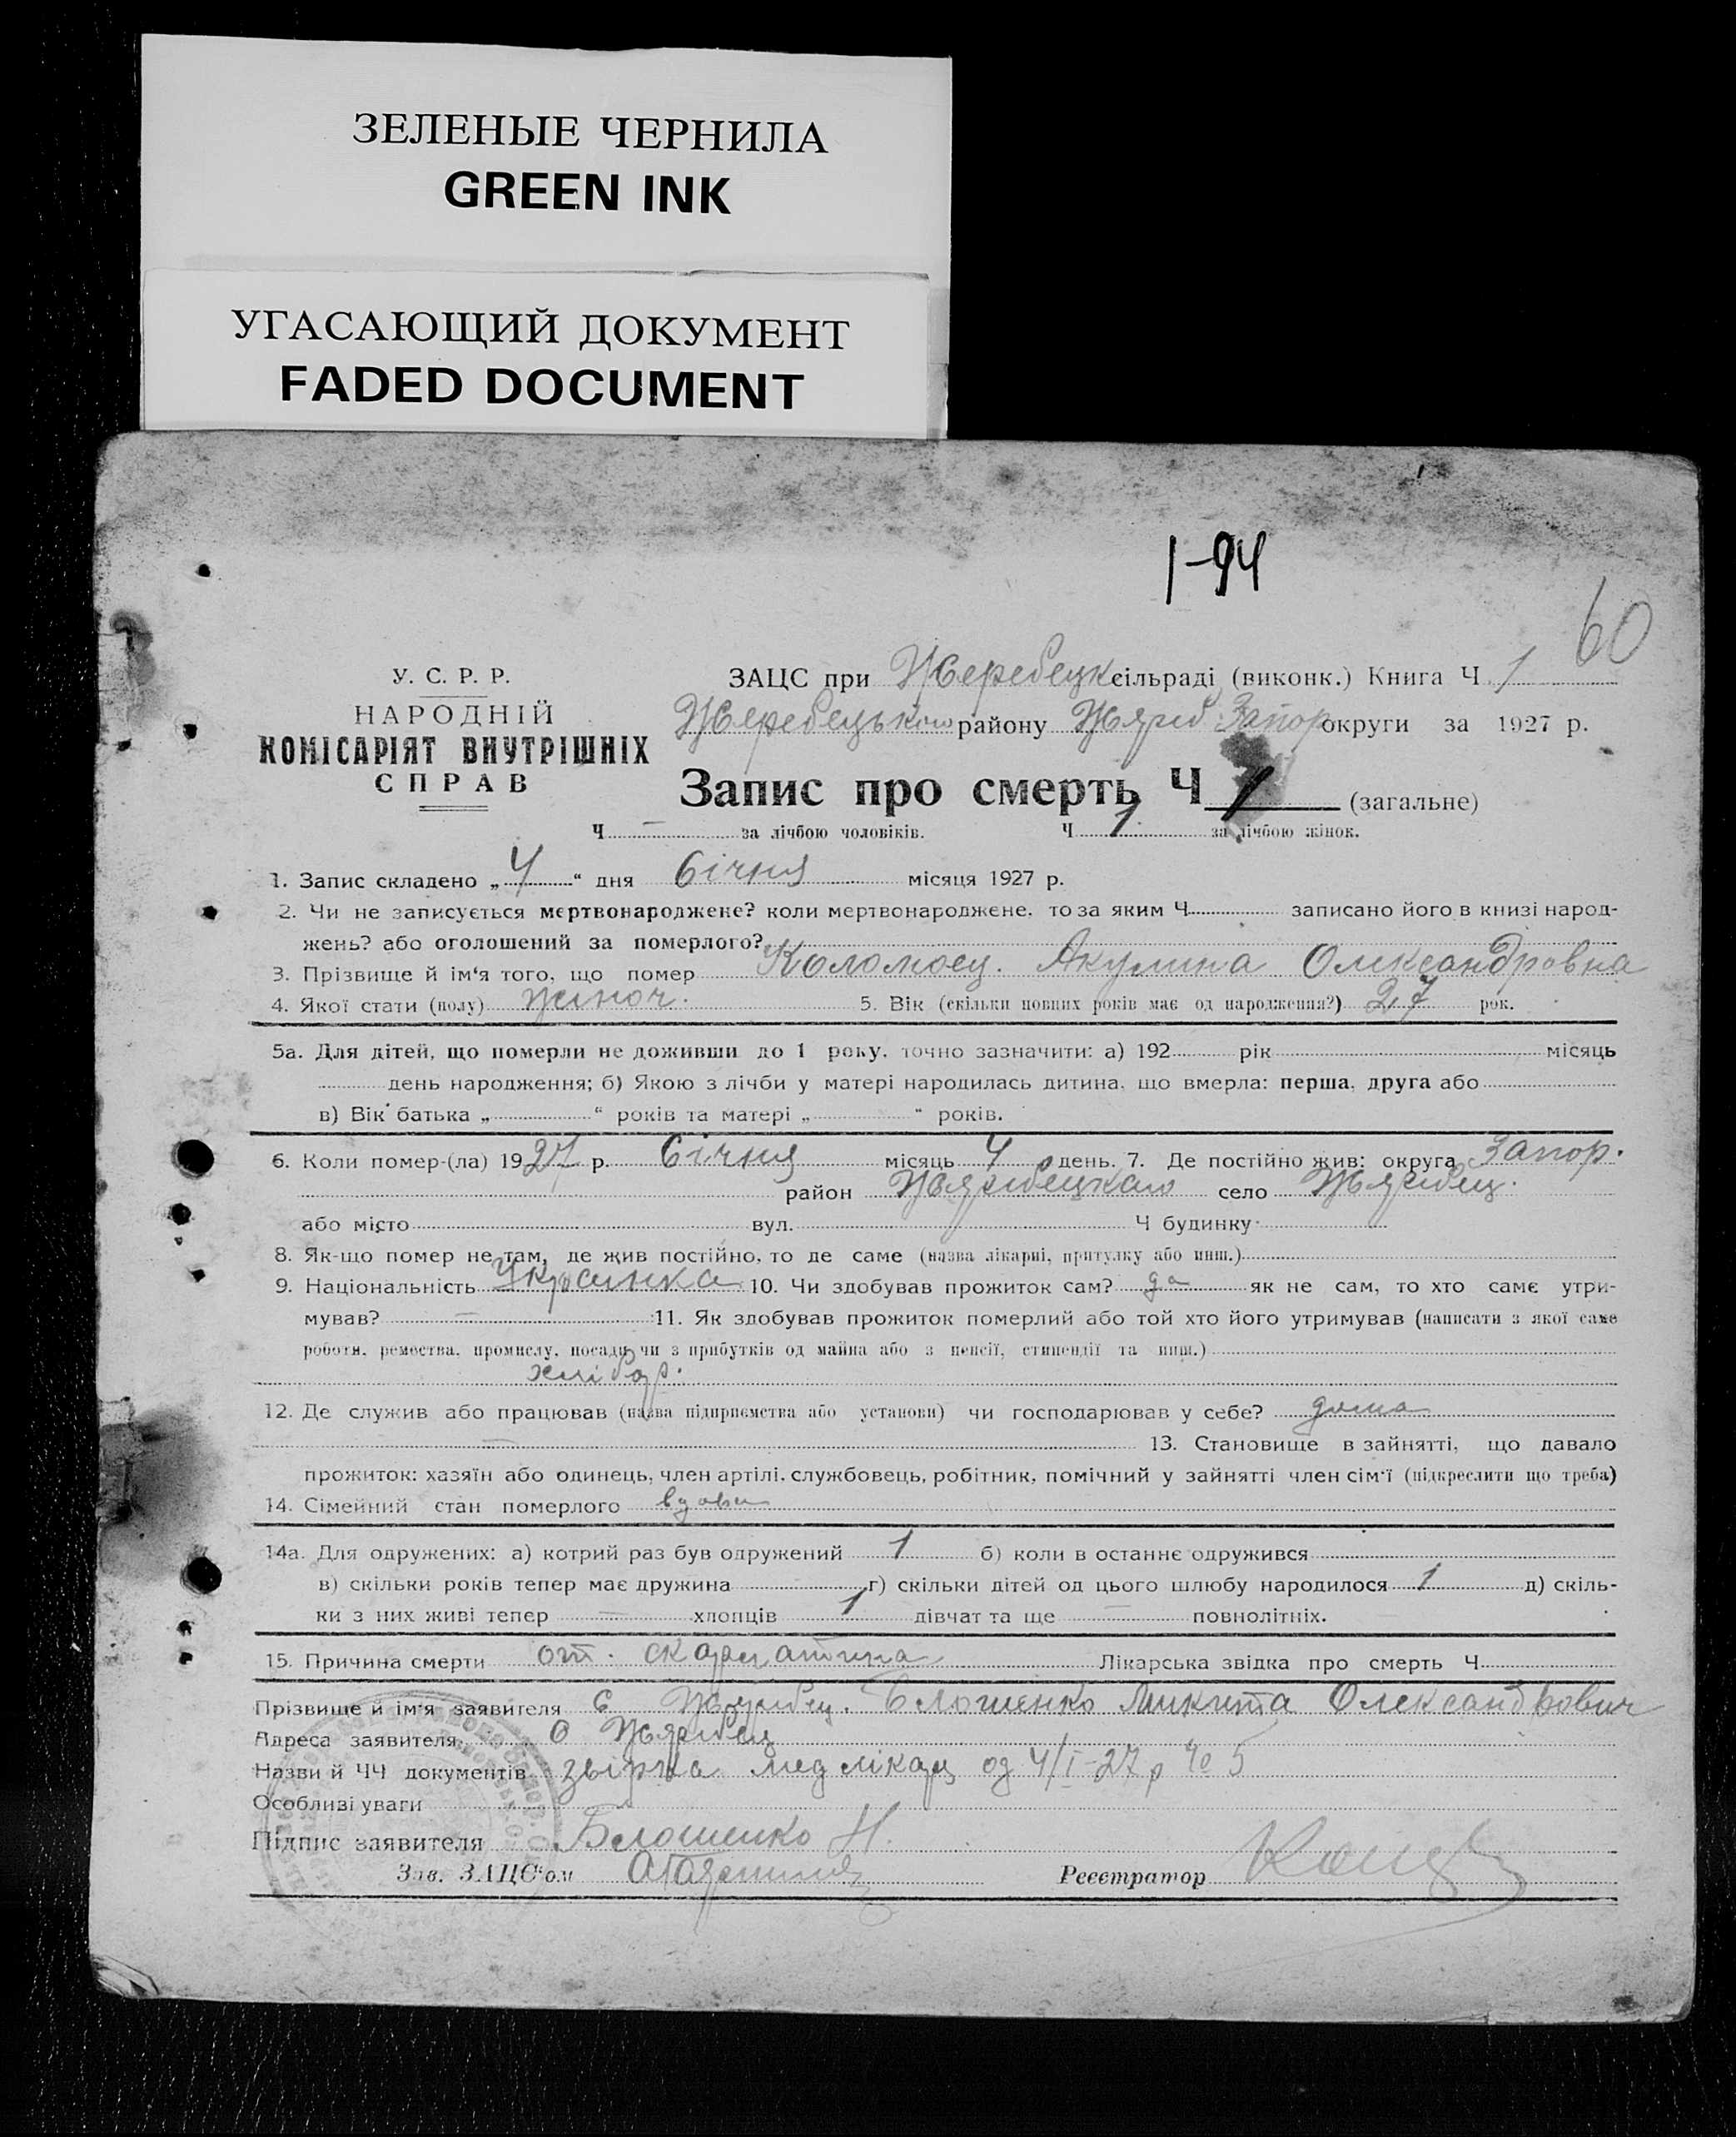 ЗЕЛЕНЫЕ ЧЕРНИЛА
GREEN INK
УГАСАЮЩИЙ ДОКУМЕНТ
FADED DOCUMENT
1-94
60
У. С. Р. Р.
НАРОДНІЙ
КОМІСАРІЯТ ВНУТРІШНІХ
СПРАВ
ЗАЦС при Жеребецк сільраді (виконк.) Книга Ч 1
Жеребецького району Запор округи за 1927 р.
Запис про смерть Ч 1 (загальне)
Ч — за лічбою чоловіків. Ч 1 за лічбою жінок.
1. Запис складено „4“ дня Січня місяця 1927 р.
2. Чи не записується мертвонароджене? коли мертвонароджене, то за яким Ч записано його в книзі народ-
жень? або оголошений за померлого?
3. Прізвище й ім'я того, що помер Коломоец. Акулина Олександровна
4. Якої стати (полу) жіноч. 5. Вік (скільки повних років має од народження?) 27 рок.
5а. Для дітей, що померли не доживши до 1 року, точно зазначити: а) 192 рік місяць
день народження; б) Якою з лічби у матері народилась дитина, що вмерла: перша, друга або
в) Вік батька „ “ років та матері „ “ років.
6. Коли помер-(ла) 1927 р. Січня місяць 4 день. 7. Де постійно жив: округа Запор.
район Жеребецкого село Жеребец.
або місто вул. Ч будинку
8. Як-що помер не там, де жив постійно, то де саме (назва лікарні, притулку або инш.)
9. Національність Украинка 10. Чи здобував прожиток сам? да як не сам, то хто саме утри-
мував? — 11. Як здобував прожиток померлий або той хто його утримував (написати з якої саме
роботи, ремества, промислу, посади чи з прибутків од майна або з пенсії, стипендії та инш.)
хлібор.
12. Де служив або працював (назва підприємства або установи) чи господарював у себе? дома
— 13. Становище в зайнятті, що давало
прожиток: хазяїн або одинець, член артілі, службовець, робітник, помічний у зайнятті член сім'ї (підкреслити що треба)
14. Сімейний стан померлого вдова
14а. Для одружених: а) котрий раз був одружений 1 б) коли в останнє одружився
в) скільки років тепер має дружина г) скільки дітей од цього шлюбу народилося 1 д) скіль-
ки з них живі тепер — хлопців 1 дівчат та ще — повнолітніх.
15. Причина смерти от. скарлатина Лікарська звідка про смерть Ч
Прізвище й ім'я заявителя с Жеребец. Белошенко Микита Олександрович
Адреса заявителя с Жеребец
Назви й ЧЧ документів звірка мед лікар од 4/I-27 р № 5
Особливі уваги
Підпис заявителя Белошенко Н.
Зав. ЗАЦС'ом Реєстратор